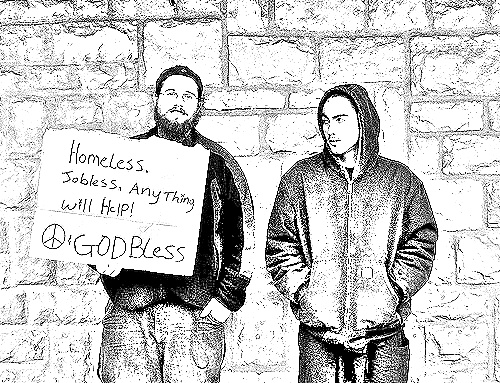 Homeless.
Jobless. Anything
will Help!
☮, GODBless